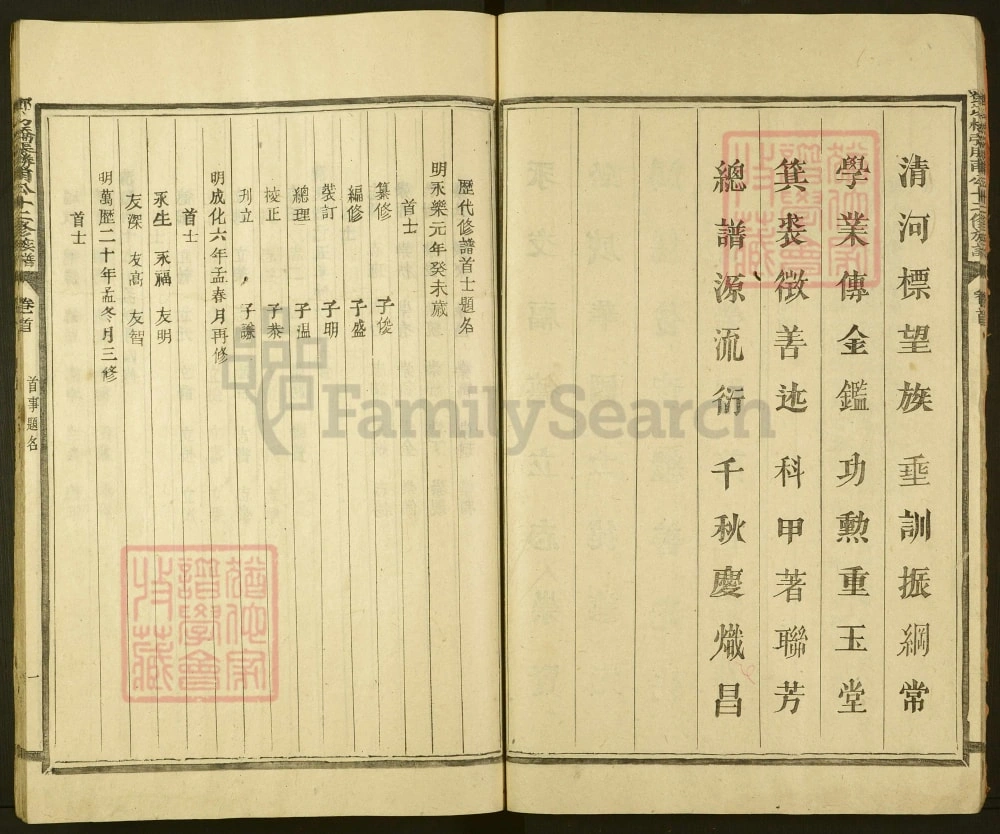 清河標望族垂訓振綱常
學業傳金鑑功勲重玉堂
箕裘徵善迹科甲著聯芳
總譜源流衍千秋慶熾昌
歷代修譜首士題名
明永樂元年癸未歲
首士
纂修 子俊
編修 子盛
裝訂 子明
總理 子温
校正 子恭
刋立 子謙
明成化六年孟春月再修
首士
永生 永福 友明
友深 友高 友智
明萬歷二十年孟冬月三修
首士
卷首
首事題名
一
FamilySearch